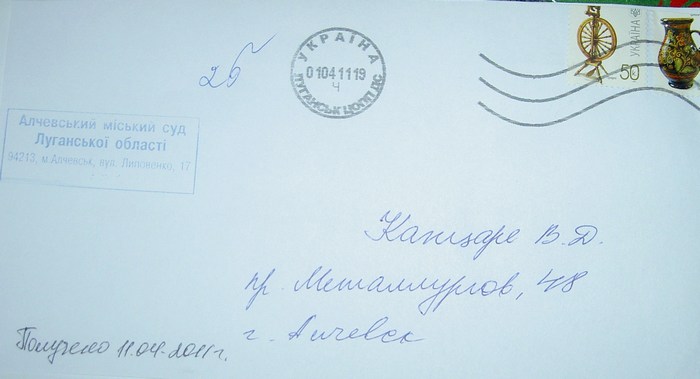 УКРАЇНА
50
УКРАЇНА
0104 11 19
Ч
ЛУГАНСЬК ЦОПП ДС
26
Алчевський міський суд
Луганської області
94213, м.Алчевськ, вул. Липовенко, 17
В.Д.
пр. Металлургов, 48
г. Алчевск
Получено 11.04.2011г.